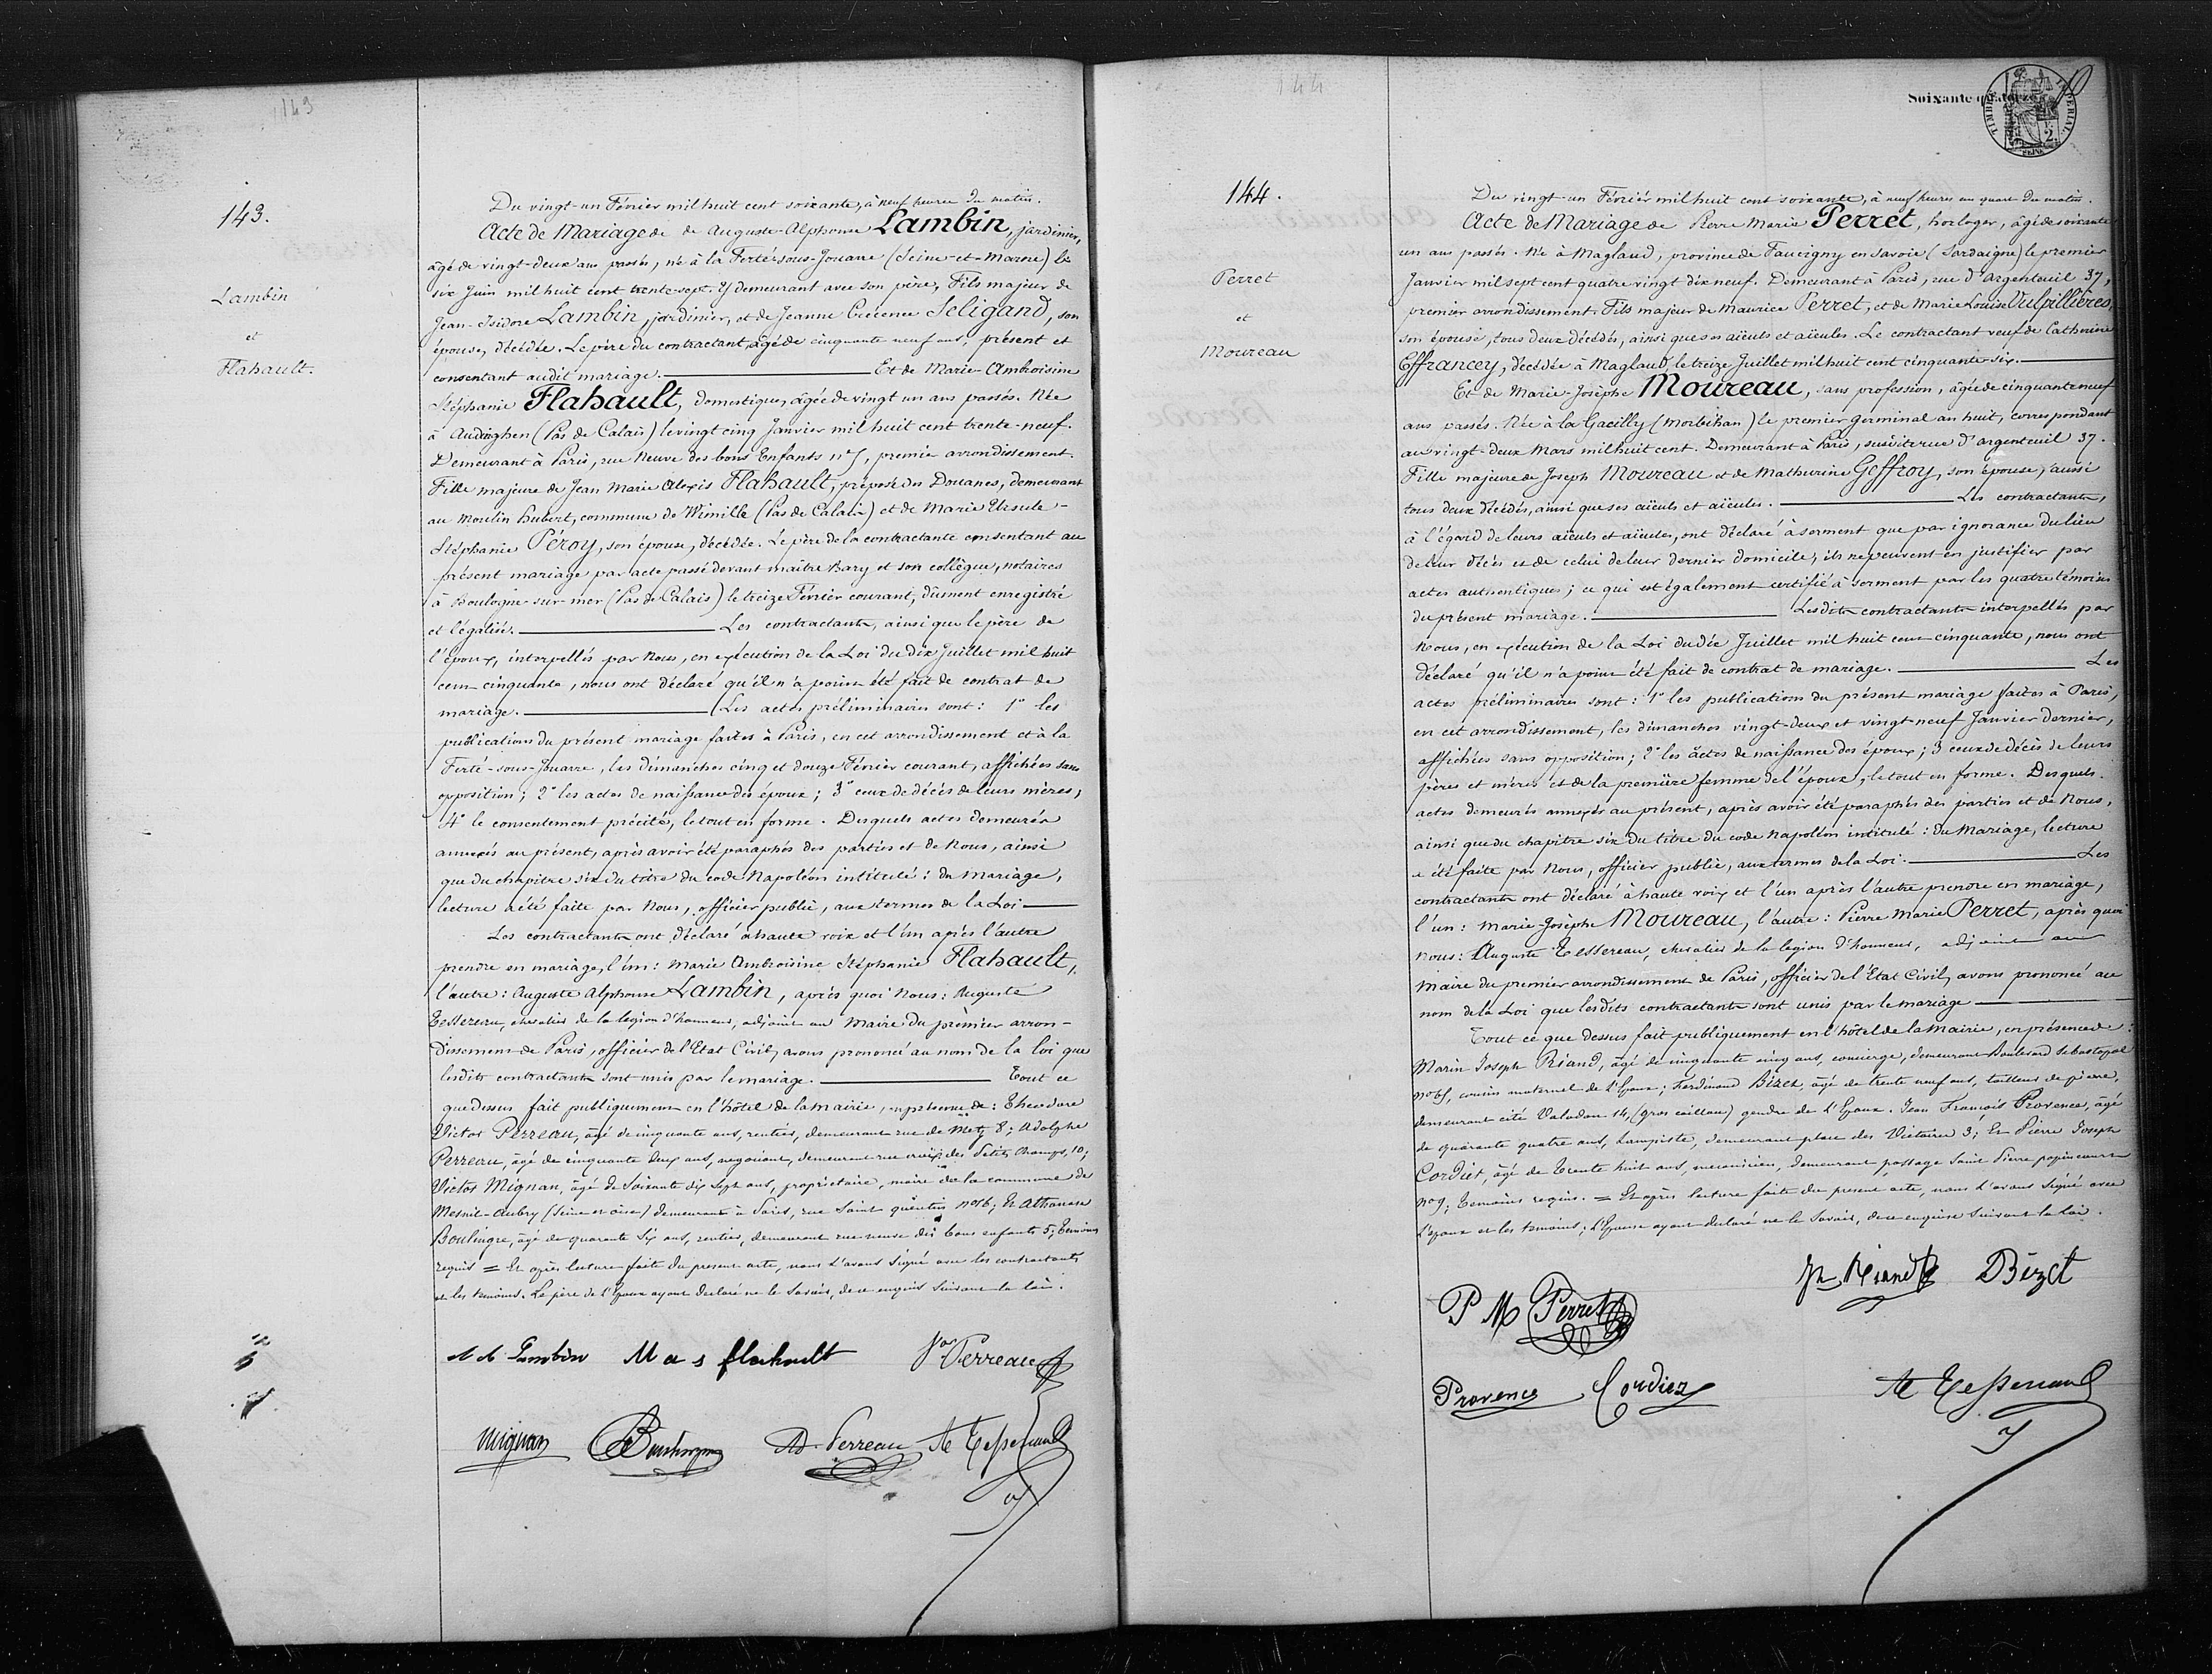 143
143.
Lambin
et
Flahault.
Du vingt-un Février mil huit cent soixante, à neuf heures du matin.
Acte de Mariage de de Auguste-Alphonse Lambin, jardinier,
âgé de vingt-deux ans passés, né à la Ferté-sous-Jouarre (Seine-et-Marne) le
six Juin mil huit cent trente-sept. Y demeurant avec son père, Fils majeur de
Jean-Isidore Lambin, jardinier, et de Jeanne Crécence Seligand, son
épouse, décédée. Le père du contractant, âgé de cinquante neuf ans, présent et
consentant audit mariage. Et de Marie-Ambroisine
Stéphanie Flahault, domestique, âgée de vingt un ans passés. Née
à Audinghen (Pas de Calais) le vingt cinq Janvier mil huit cent trente-neuf.
Demeurant à Paris, rue Neuve des bons Enfants n° 5, premier arrondissement.
Fille majeure de Jean Marie Alexis Flahault, préposé des Douanes, demeurant
au Moulin hubert, commune de Wimille (Pas de Calais) et de Marie Ursule-
Stéphanie Péroy, son épouse, décédée. Le père de la contractante consentant au
présent mariage par acte passé devant maître Bary et son collègue, notaires
à Boulogne-sur-mer (Pas de Calais) le treize Février courant, dûment enregistré
et légalisé. Les contractants, ainsi que le père de
l'époux, interpellés par Nous, en exécution de la Loi du dix Juillet mil huit
cent cinquante, nous ont déclaré qu'il n'a point été fait de contrat de
mariage. Les actes préliminaires sont: 1° les
publications du présent mariage faites à Paris, en cet arrondissement et à la
Ferté-sous-Jouarre, les dimanches cinq et douze Février courant, affichées sans
opposition; 2° les actes de naissance des époux; 3° ceux de décès de leurs mères;
4° le consentement précité, le tout en forme. Desquels actes demeurés
annexés au présent, après avoir été paraphés des parties et de Nous, ainsi
que du chapitre six du titre du code Napoléon intitulé: du Mariage,
lecture a été faite par Nous, officier public, aux termes de la Loi
Les contractants ont déclaré à haute voix et l'un après l'autre
prendre en mariage, l'un: Marie Ambroisine Stéphanie Flahault,
l'autre: Auguste Alphonse Lambin, après quoi Nous: Auguste
Tessereau, chevalier de la legion d'honneur, adjoint au Maire du premier arron-
dissement de Paris, officier de l'Etat Civil, avons prononcé au nom de la loi que
lesdits contractants sont unis par le mariage. Tout ce
que dessus fait publiquement en l'hôtel de la mairie, en présence de: Theodore
Victor Perreau, âgé de cinquante ans, rentier, demeurant rue de Metz 8; Adolphe
Perreau, âgé de cinquante deux ans, négociant, demeurant rue croix des Petits Champs, 10;
Victor Mignan, âgé de soixante dix sept ans, propriétaire, maire de la commune de
Mesnil-Aubry (Seine et oise) demeurant à Paris, rue Saint quentin n° 16; Et Athanase
Boulingre, âgé de quarante six ans, rentier, demeurant rue neuve des bons enfants 5; Témoins
requis = Et après lecture faite du présent acte, nous l'avons signé avec les contractants
et les témoins. Le père de l'Epoux ayant declaré ne le savoir, de ce enquis suivant la loi.
A A Lambin M a s flahault Vor Perreau
Mignan Boulingre Ad. Perreau A Tessereau
144
Soixante quatorze
TIMBRE IMPERIAL
SEINE
144.
Perret
et
Moureau
Du vingt-un Février mil huit cent soixante, à neuf heures un quart du matin.
Acte de Mariage de Pierre Marie Perret, horloger, âgé de soixante
un ans passés. Né à Magland, province de Faucigny en Savoie (Sardaigne) le premier
Janvier mil sept cent quatre vingt dix neuf. Demeurant à Paris, rue d'argenteuil 37,
premier arrondissement. Fils majeur de Maurice Perret, et de Marie Louise Vulpillières,
son épouse, tous deux décédés, ainsi que ses aïeuls et aïeules. Le contractant veuf de Catherine
Effrancey, décédée à Magland, le treize Juillet mil huit cent cinquante-six.
Et de Marie-Josèphe Moureau, sans profession, âgée de cinquante neuf
ans passés. Née à la Gacilly (Morbihan) le premier Germinal an huit, correspondant
au vingt-deux Mars mil huit cent. Demeurant à Paris, susdite rue d'argenteuil 37.
Fille majeure de Joseph Moureau et de Mathurine Geffroy, son épouse, aussi
tous deux décédés, ainsi que ses aïeuls et aïeules. Les contractants,
à l'égard de leurs aïeuls et aïeules, ont déclaré à serment que par ignorance du lieu
de leur décès et de celui de leur dernier domicile, ils ne peuvent en justifier par
actes authentiques; ce qui est également certifié à serment par les quatre témoins
du présent mariage. Lesdits contractants interpellés par
Nous, en exécution de la Loi du dix Juillet mil huit cent cinquante, nous ont
déclaré qu'il n'a point été fait de contrat de mariage. Les
actes préliminaires sont: 1° les publications du présent mariage faites à Paris,
en cet arrondissement, les dimanches vingt-deux et vingt-neuf Janvier dernier,
affichées sans opposition; 2° les actes de naissance des époux; 3 ceux de décès de leurs
pères et mères et de la première femme de l'époux, le tout en forme. Desquels
actes demeurés annexés au présent, après avoir été paraphés des parties et de Nous,
ainsi que du chapitre six du titre du code Napoléon intitulé: du Mariage, lecture
a été faite par Nous, officier public, aux termes de la Loi. Les
contractants ont déclaré à haute voix et l'un après l'autre prendre en mariage,
l'un: Marie-Josèphe Moureau, l'autre: Pierre Marie Perret, après quoi
Nous: Auguste Tessereau, chevalier de la legion d'honneur, adjoint au
Maire du premier arrondissement de Paris, officier de l'Etat Civil, avons prononcé au
nom de la Loi que lesdits contractants sont unis par le mariage
Tout ce que dessus fait publiquement en l'hôtel de la Mairie, en présence de:
Marin Joseph Riand, âgé de cinquante cinq ans, concierge, demeurant Boulevard Sebastopol
n° 65, cousin maternel de l'Epoux; Ferdinand Bizet, âgé de trente neuf ans, tailleur de pierre,
demeurant cité Valadon 14, (gros caillou) gendre de l'Epoux. Jean François Provence, âgé
de quarante quatre ans, Lampiste, demeurant place des Victoires 3; Et Pierre Joseph
Cordiet, âgé de trente huit ans, mecanicien, demeurant passage Saint Pierre popincourt
n° 9; Témoins requis. = Et après lecture faite du présent acte, nous l'avons signé avec
l'epoux et les témoins; L'Epouse ayant declaré ne le savoir, de ce enquise suivant la loi.
P M Perret Riand Bizet
Provence Cordiez A Tessereau